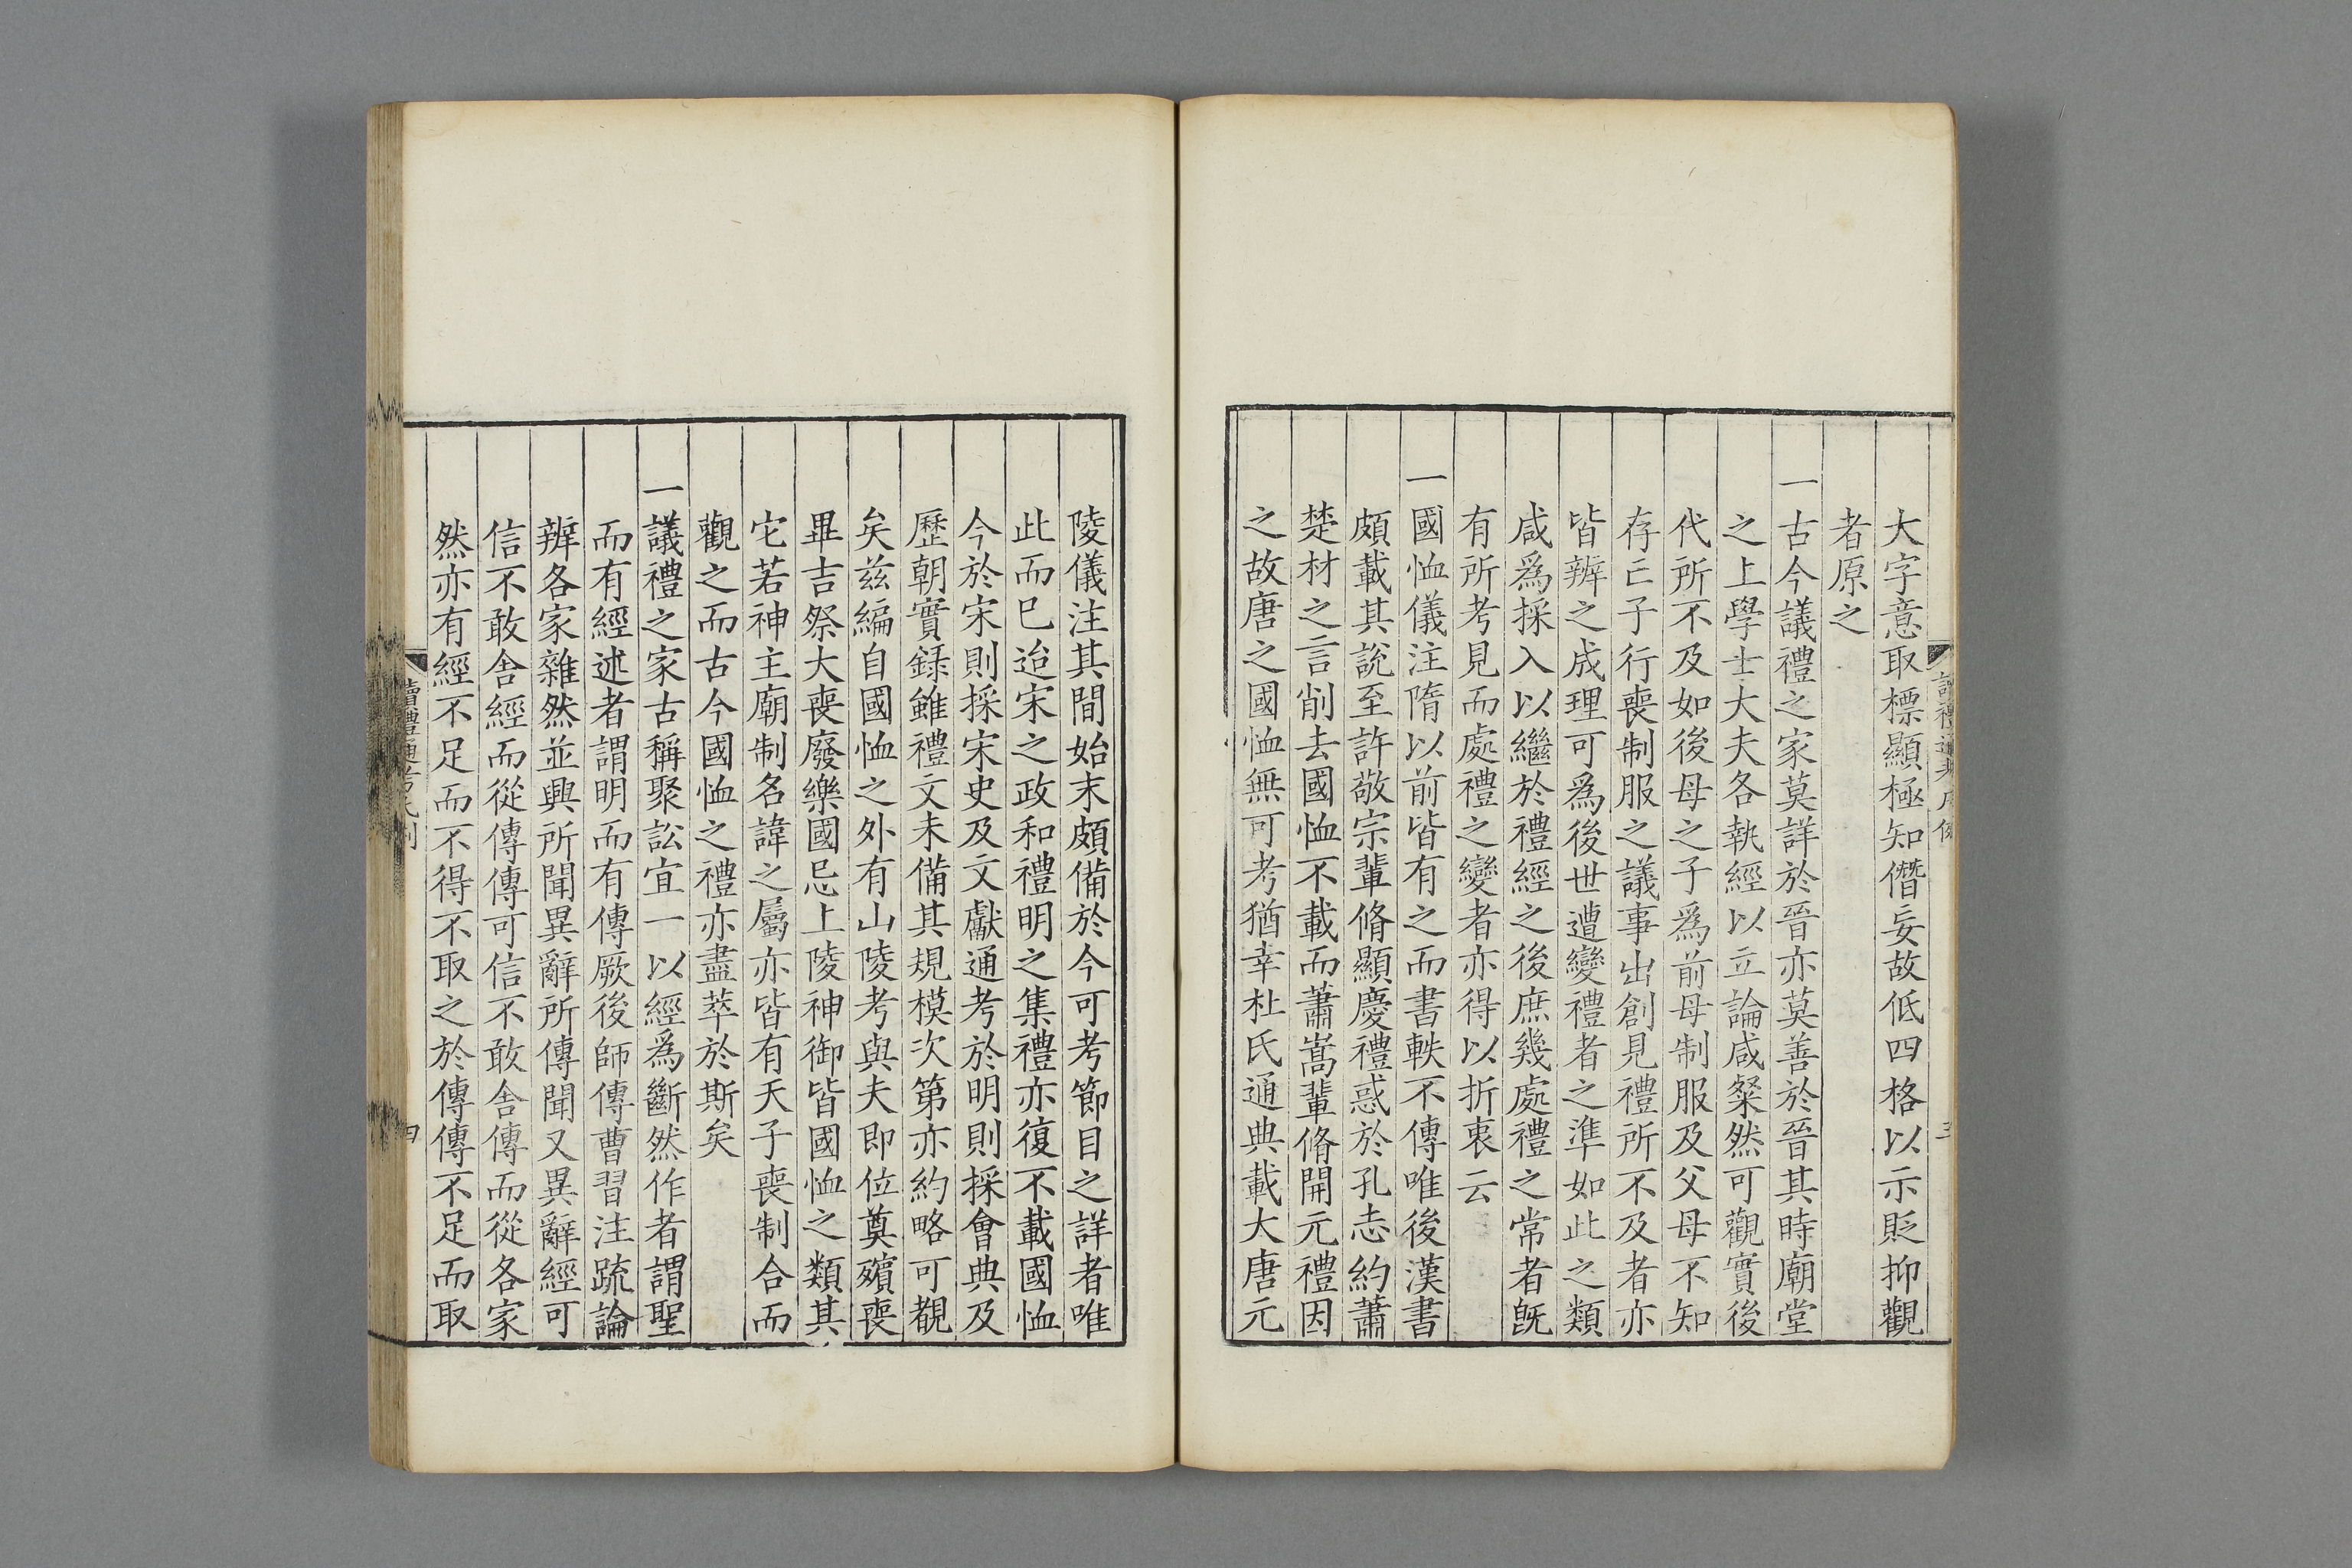 大字意取標顯極知僭妄故低四格以示貶抑觀
者原之
一古今議禮之家莫詳於晉亦莫善於晉其時廟堂
之上學士大夫各執經以立論咸粲然可觀實後
代所不及如後母之子爲前母制服及父母不知
存亡子行喪制服之議事出創見禮所不及者亦
皆辨之成理可爲後世遭變禮者之準如此之類
咸爲採入以繼於禮經之後庶幾處禮之常者旣
有所考見而處禮之變者亦得以折衷云
一國恤儀注隋以前皆有之而書軼不傳唯後漢書
頗載其說至許敬宗輩脩顯慶禮惑於孔志約蕭
楚材之言削去國恤不載而蕭嵩輩脩開元禮因
之故唐之國恤無可考猶幸杜氏通典載大唐元
陵儀注其間始末頗備於今可考節目之詳者唯
此而已迨宋之政和禮明之集禮亦復不載國恤
今於宋則採宋史及文獻通考於明則採會典及
歷朝實録雖禮文未備其規模次第亦約略可覩
矣兹編自國恤之外有山陵考與夫即位奠殯喪
畢吉祭大喪廢樂國忌上陵神御皆國恤之類其
它若神主廟制名諱之屬亦皆有天子喪制合而
觀之而古今國恤之禮亦盡萃於斯矣
一議禮之家古稱聚訟宜一以經爲斷然作者謂聖
而有經述者謂明而有傳厥後師傳曹習注疏論
辨各家雜然並興所聞異辭所傳聞又異辭經可
信不敢舍經而從傳傳可信不敢舍傳而從各家
然亦有經不足而不得不取之於傳傳不足而取
四